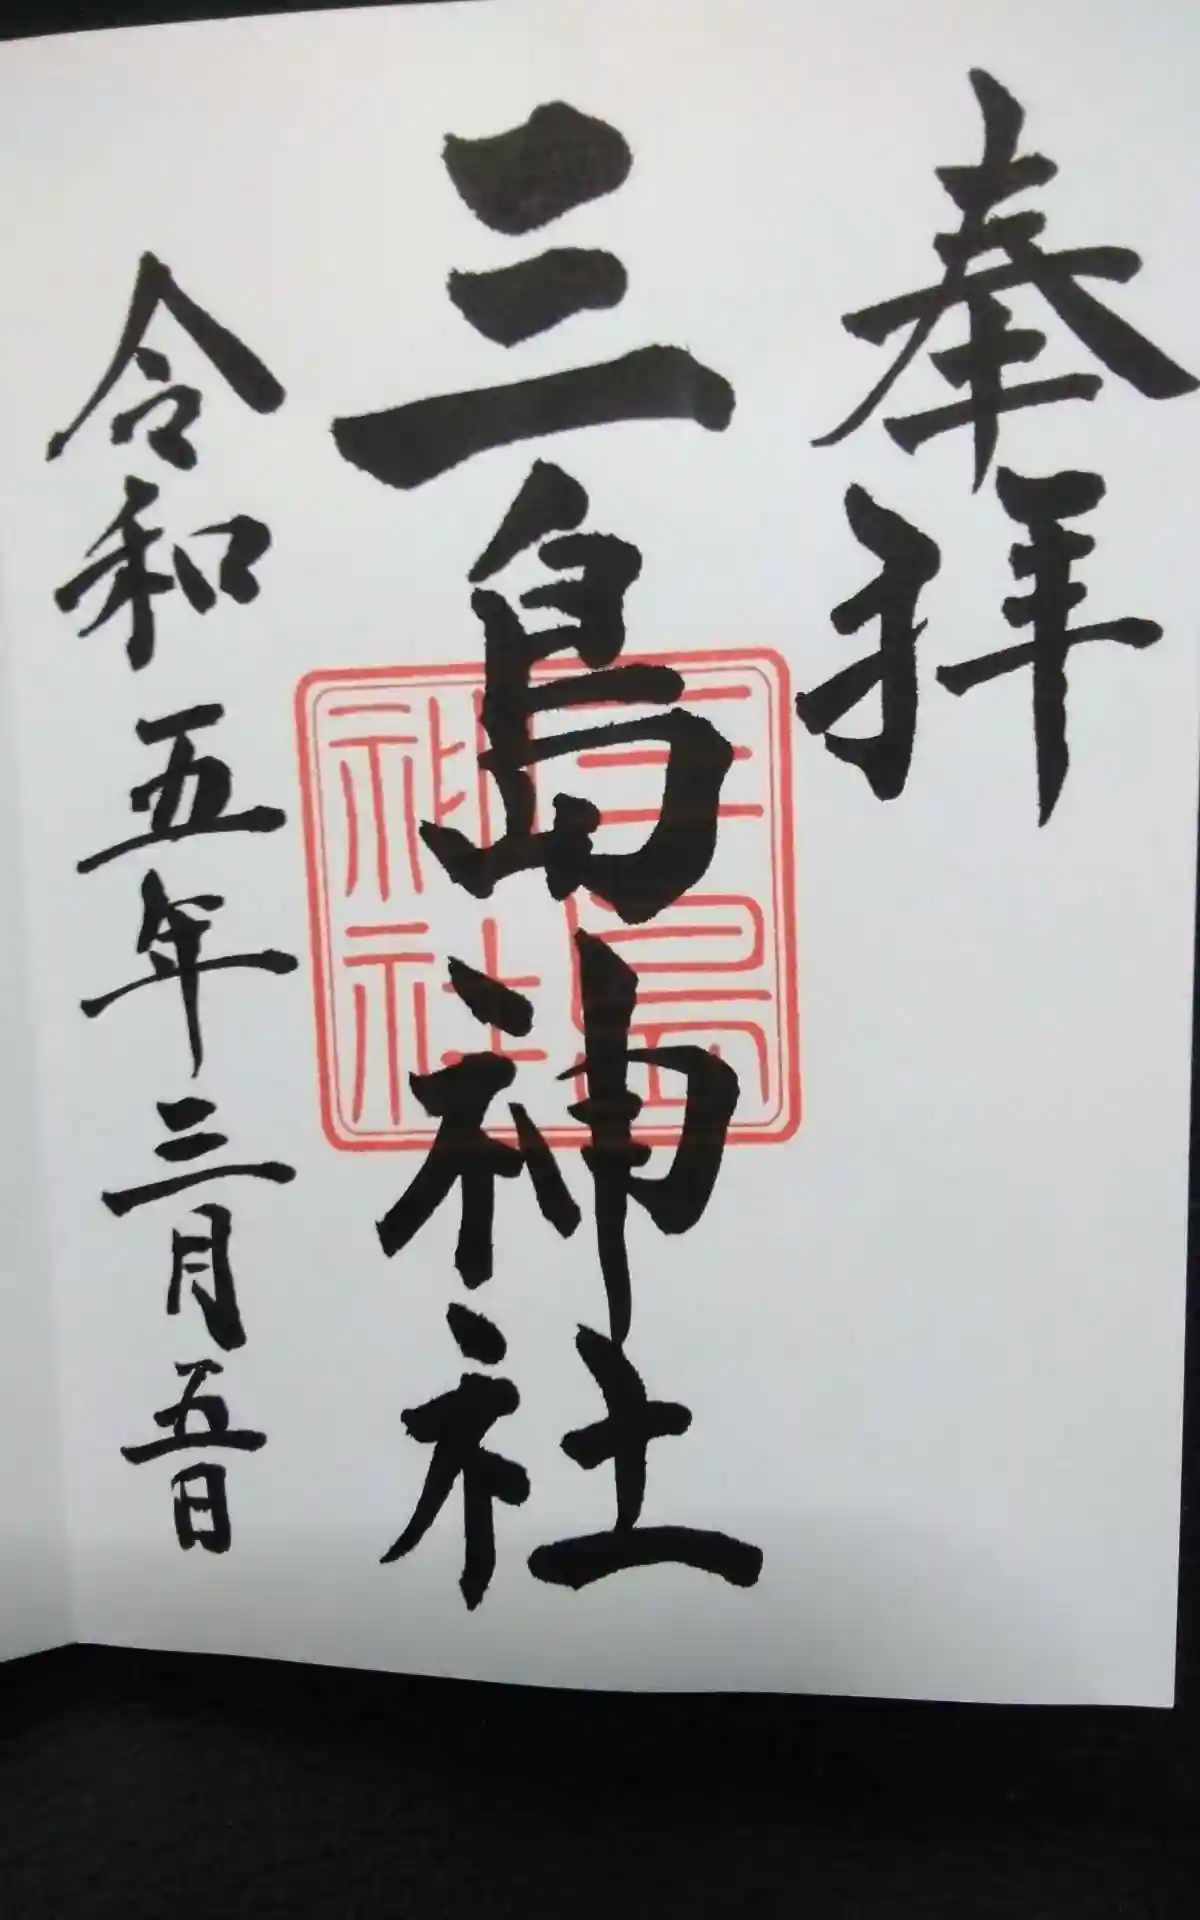 奉拝
三島神社
三島神社
令和五年三月五日